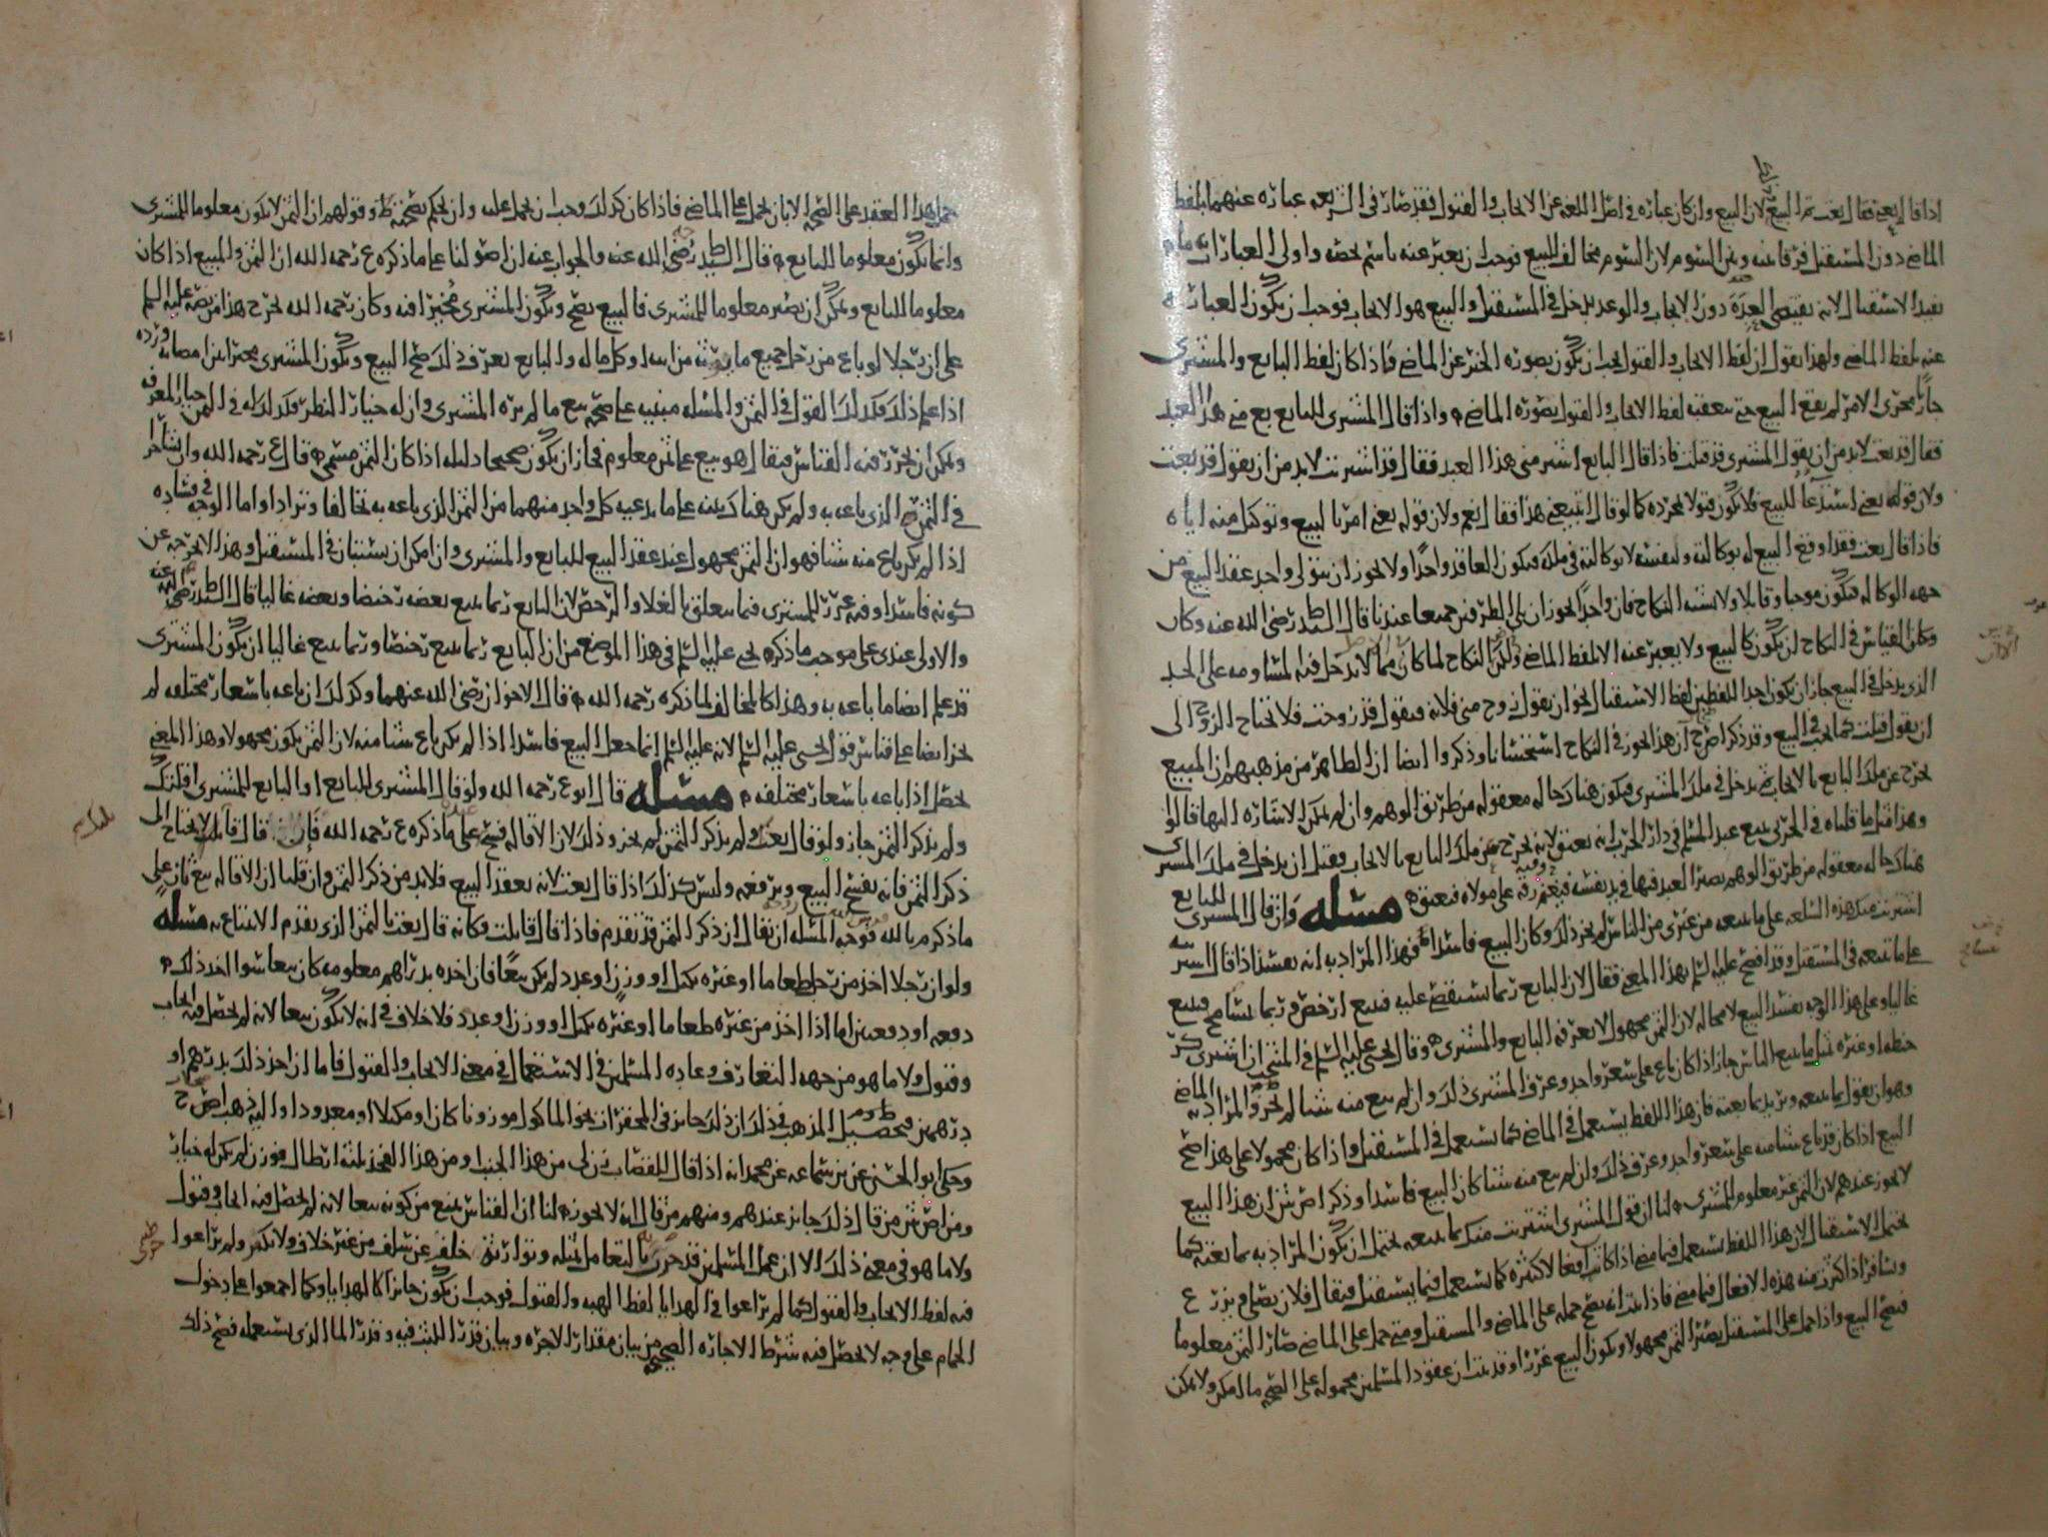 اذا قال بعني فقال بعت تم البيع لان البيع وان كان عبارة في اصل اللغة عن الايجاب والقبول فقد صار في الشريعة عبارة عنهما بلفظ
الماضي دون المستقبل فرقا بينه وبين السوم لان السوم مخالف للبيع فوجب ان يعبر عنه باسم يخصه واولى العبارات به ما
يفيد الاستقبال لانه يقتضي العدة دون الايجاب والوعد يدخل في المستقبل والبيع هو الايجاب فوجب ان يكون العبارة
عنه بلفظ الماضي ولهذا نقول ان لفظ الايجاب والقبول يجب ان يكون بصورة الخبر عن الماضي فاذا كان لفظ البايع والمشتري
جاريا مجرى الامر لم يقع البيع حتى يتعقبه لفظ الايجاب والقبول بصورة الماضي واذا قال المشتري للبايع بع مني هذا العبد
فقال قد بعت لابد من ان يقول المشتري قد قبلت فاذا قال البايع اشتر مني هذا العبد فقال قد اشتريت لابد من ان يقول قد بعت
ولان قوله بعني استدعا للبيع فلا يكون قبولا بمجرده كما لو قال اتبيعني هذا فقال نعم ولان قوله بعني امر بالبيع وتوكيل منه اياه
فاذا قال بعت فقد اوقع البيع له بوكالته ولنفسه لا بوكالته في ملكه فيكون العاقد واحدا ولا يجوز ان يتولى واحد عقد البيع من
جهه الوكاله فيكون موجبا وقابلا ولا يشبه النكاح فان واحدا يجوز ان يلي الطرفين جميعا عندنا قال السيد ط رضي الله عنه وكان
وكان القياس في النكاح ان يكون كالبيع ولا يعبر عنه الا بلفظ الماضي ولكن النكاح لما كان مما لا يدخل فيه المساومه على الحد
الذي يدخل في البيع جاز ان يكون احد اللفظين لفظ الاستقبال نحو ان يقول زوج مني فلانه فيقول قد زوجت فلا يحتاج الزوج الى
ان يقول قبلت كما يجب في البيع وقد ذكر اص ح ان هذا يجوز في النكاح استحسانا وذكروا ايضا ان الظاهر من مذهبهم ان المبيع
يخرج عن ملك البايع بالايجاب ثم يدخل في ملك المشتري فيكون هناك حاله معقوله من طريق الوهم وان لم يمكن الاشارة اليها قالوا
وهذا مثل ما قلناه في الحربي يبيع عبد المسلم في دار الحرب انه يعتق لانه يخرج عن ملك البايع بالايجاب وقبل ان يدخل في ملك المشتري
هناك حاله معقوله من طريق الوهم يصير العبد فيها في يد نفسه فيغنم رقه على مولاه فيعتق مسله وان قال المشتري للبايع
اشتريت منك هذه السلعه على ما تبيعه من غيري من الناس لم يجز ذلك وكان البيع فاسدا فهذا المراد به انه يفسد اذا قال اشتريه
على ما تبيعه في المستقبل وقد افصح عليه السلم بهذا المعنى فقال لان البايع ربما استقضي عليه فيبيع ارخص وربما تسامح فيبيع
غاليا وعلى هذا الوجه يفسد البيع لا محاله لان الثمن مجهول لا يعرفه البايع والمشتري وقال يحيى عليه السلم في المنتخب ان اشترى كر
حنطه او غيره مثل ما يبيع الناس جاز اذا كان باع على سعر واحد وعرف المشتري ذلك وان لم يبع منه شيا لم يجز والمراد به الماضي
وهو ان يقول بما تبيعه ويريد بما بعته فان هذا اللفظ يستعمل في الماضي كما يستعمل في المستقبل واذا كان محمولا على هذا صح
البيع اذا كان قد باع شيا منه على سعر واحد وعرف ذلك وان لم يبع منه شيا كان البيع فاسدا وذكر اص ش ان هذا البيع
لا يجوز عندهم لان الثمن غير معلوم للمشتري لنا ان قول المشتري اشتريت منك بما تبيعه يحتمل ان يكون المراد به بما بعته كما
يحتمل الاستقبال لان هذا اللفظ يستعمل فيما مضى اذا كانت افعالا كثيره كما يستعمل فيما يستقبل فيقال فلان يصلي ويزرع
ويسافر اذا كثرت منه هذه الافعال فيما مضى فاذا ثبت انه يصح حمله على الماضي والمستقبل ومتى حمل على الماضي صار الثمن معلوما
فيصح البيع واذا حمل على المستقبل يصير الثمن مجهولا ويكون البيع غررا وقد ثبت ان عقود المسلمين محموله على الصحه ما امكن ولا يمكن
حمل هذا العقد على الصحه الا بان يحمل على الماضي فاذا كان كذلك وجب ان يحمل عليه وان يحكم بصحته وقولهم ان الثمن لا يكون معلوما للمشتري
وانما يكون معلوما للبايع قال السيد ط رضي الله عنه والجواب عنه ان اصولنا على ما ذكره ع رحمه الله ان الثمن والمبيع اذا كان
معلوما للبايع ويمكن ان يصير معلوما للمشتري فالبيع يصح ويكون المشتري مخيرا فيه وكان رحمه الله يخرج هذا من نصه عليه السلم
على ان رجلا لو باع من رجل جميع ما يرثه من ابيه او كل ماله والبايع يعرف ذلك صح البيع ويكون المشتري مخيرا بين امضائه ورده
اذا علم ذلك فكذلك القول في الثمن والمسله مبنيه على صحه بيع ما لم يره المشتري وان له خيار النظر فكذلك له في الثمن خيار المعرفه
ويمكن ان يحرر فيه القياس فيقال هو بيع على ثمن معلوم فجاز ان يكون صحيحا دليله اذا كان الثمن مسمى قال ع رحمه الله وان تشاجرا
في الثمن الذي باعه به ولم يكن هناك بينه على ما يدعيه كل واحد منهما من الثمن الذي باعه به تحالفا وترادا واما الوجه في فساده
اذا لم يكن باع منه شيا فهو ان الثمن مجهول عند عقد البيع للبايع والمشتري وان امكن ان يستبان في المستقبل وهذا لا يخرجه عن
كونه فاسدا وفيه غرر للمشتري فيما يتعلق بالغلا والرخص لان البايع ربما يبيع بعضه رخيصا وبعضه غاليا قال السيد ط رضي الله عنه
والاولى عندي على موجب ما ذكره يحيى عليه السلم في هذا الموضع من ان البايع ربما يبيع رخيصا وربما يبيع غاليا ان يكون المشتري
قد علم ايضا ما باعه به وهذا كالمخالف لما ذكره رحمه الله قال الاخوان رضي الله عنهما وكذلك ان باعه باسعار مختلفه لم
يجز ايضا على قياس قول يحيى عليه السلم لانه عليه السلم انما جعل البيع فاسدا اذا لم يكن باع شيا منه لان الثمن يكون مجهولا وهذا المعنى
يحصل اذا باعه باسعار مختلفه مسله قال ابو ع رحمه الله ولو قال المشتري للبايع او البايع للمشتري اقلتك
ولم يذكر الثمن جاز ولو قال بعت ولم يذكر الثمن لم يجز وذلك لان الاقاله فسخ على ما ذكره ع رحمه الله فان قال قايلت لا يحتاج الى
ذكر الثمن فانه يفسخ البيع ويرفعه وليس كذلك اذا قال بعت لانه يعقد البيع فلابد من ذكر الثمن وان قلنا ان الاقاله بيع ثان على
ما ذكره م بالله فوجه المسله ان يقال ان ذكر الثمن قد تقدم فاذا قال قايلت فكانه قال بعت بالثمن الذي تقدم الابتياع به مسله
ولو ان رجلا اخذ من رجل طعاما او غيره بكيل او وزن او عدد لم يكن بيعا فان اخذه بدراهم معلومه كان بيعا سوا اخذ ذلك
دفعه او دفعتين اما اذا اخذ من غيره طعاما او غيره بكيل او وزن او عدد فلا خلاف في انه لا يكون بيعا لانه لم يحصل فيه ايجاب
وقبول ولا ما هو من جهه التعارف وعادة المسلمين في الاستعمال في معنى الايجاب والقبول فاما ان اخذ ذلك بدرهم او
درهمين فتحصيل المذهب في ذلك ان ذلك جايز في المحقرات نحو الماكول موزونا كان او مكيلا او معدودا واليه ذهب اص ح
وحكى ابو الحسن عن بن سماعه عن محمد انه اذا قال للقصاب زن لي من هذا الجنب او من هذا الفخذ ثلثه ارطال فوزن لم يكن له خيار
ومن اص ش من قال ذلك جايز عندهم ومنهم من قال انه لا يجوز لنا ان القياس يمنع من كونه بيعا لانه لم يحصل فيه ايجاب وقبول
ولا ما هو في معنى ذلك الا ان عمل المسلمين قد جرى بالتعامل بمثله وتوارثه خلف عن سلف من غير خلاف ولا نكير ولم يراعوا
فيه لفظ الايجاب والقبول كما لم يراعوا في الهدايا لفظ الهبه والقبول فوجب ان يكون جايزا كالهدايا وكما اجمعوا على دخول
الحمام على وجه لا يحصل فيه شرط الاجازه الصحيحه من بيان مقدار الاجره وبيان قدر اللبث فيه وقدر الما الذي يستعمله فصح ذلك